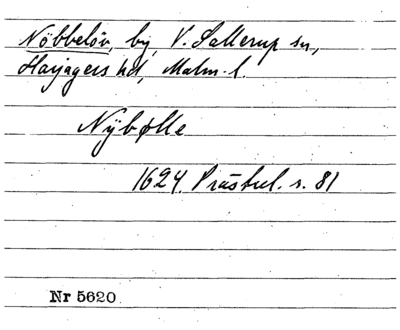 Nöbbelöv, by, V. Sallerup sn,
Harjagers hd, Malm. l.
Nÿbølle
1624. Prästrel. s. 81
Nr 5620